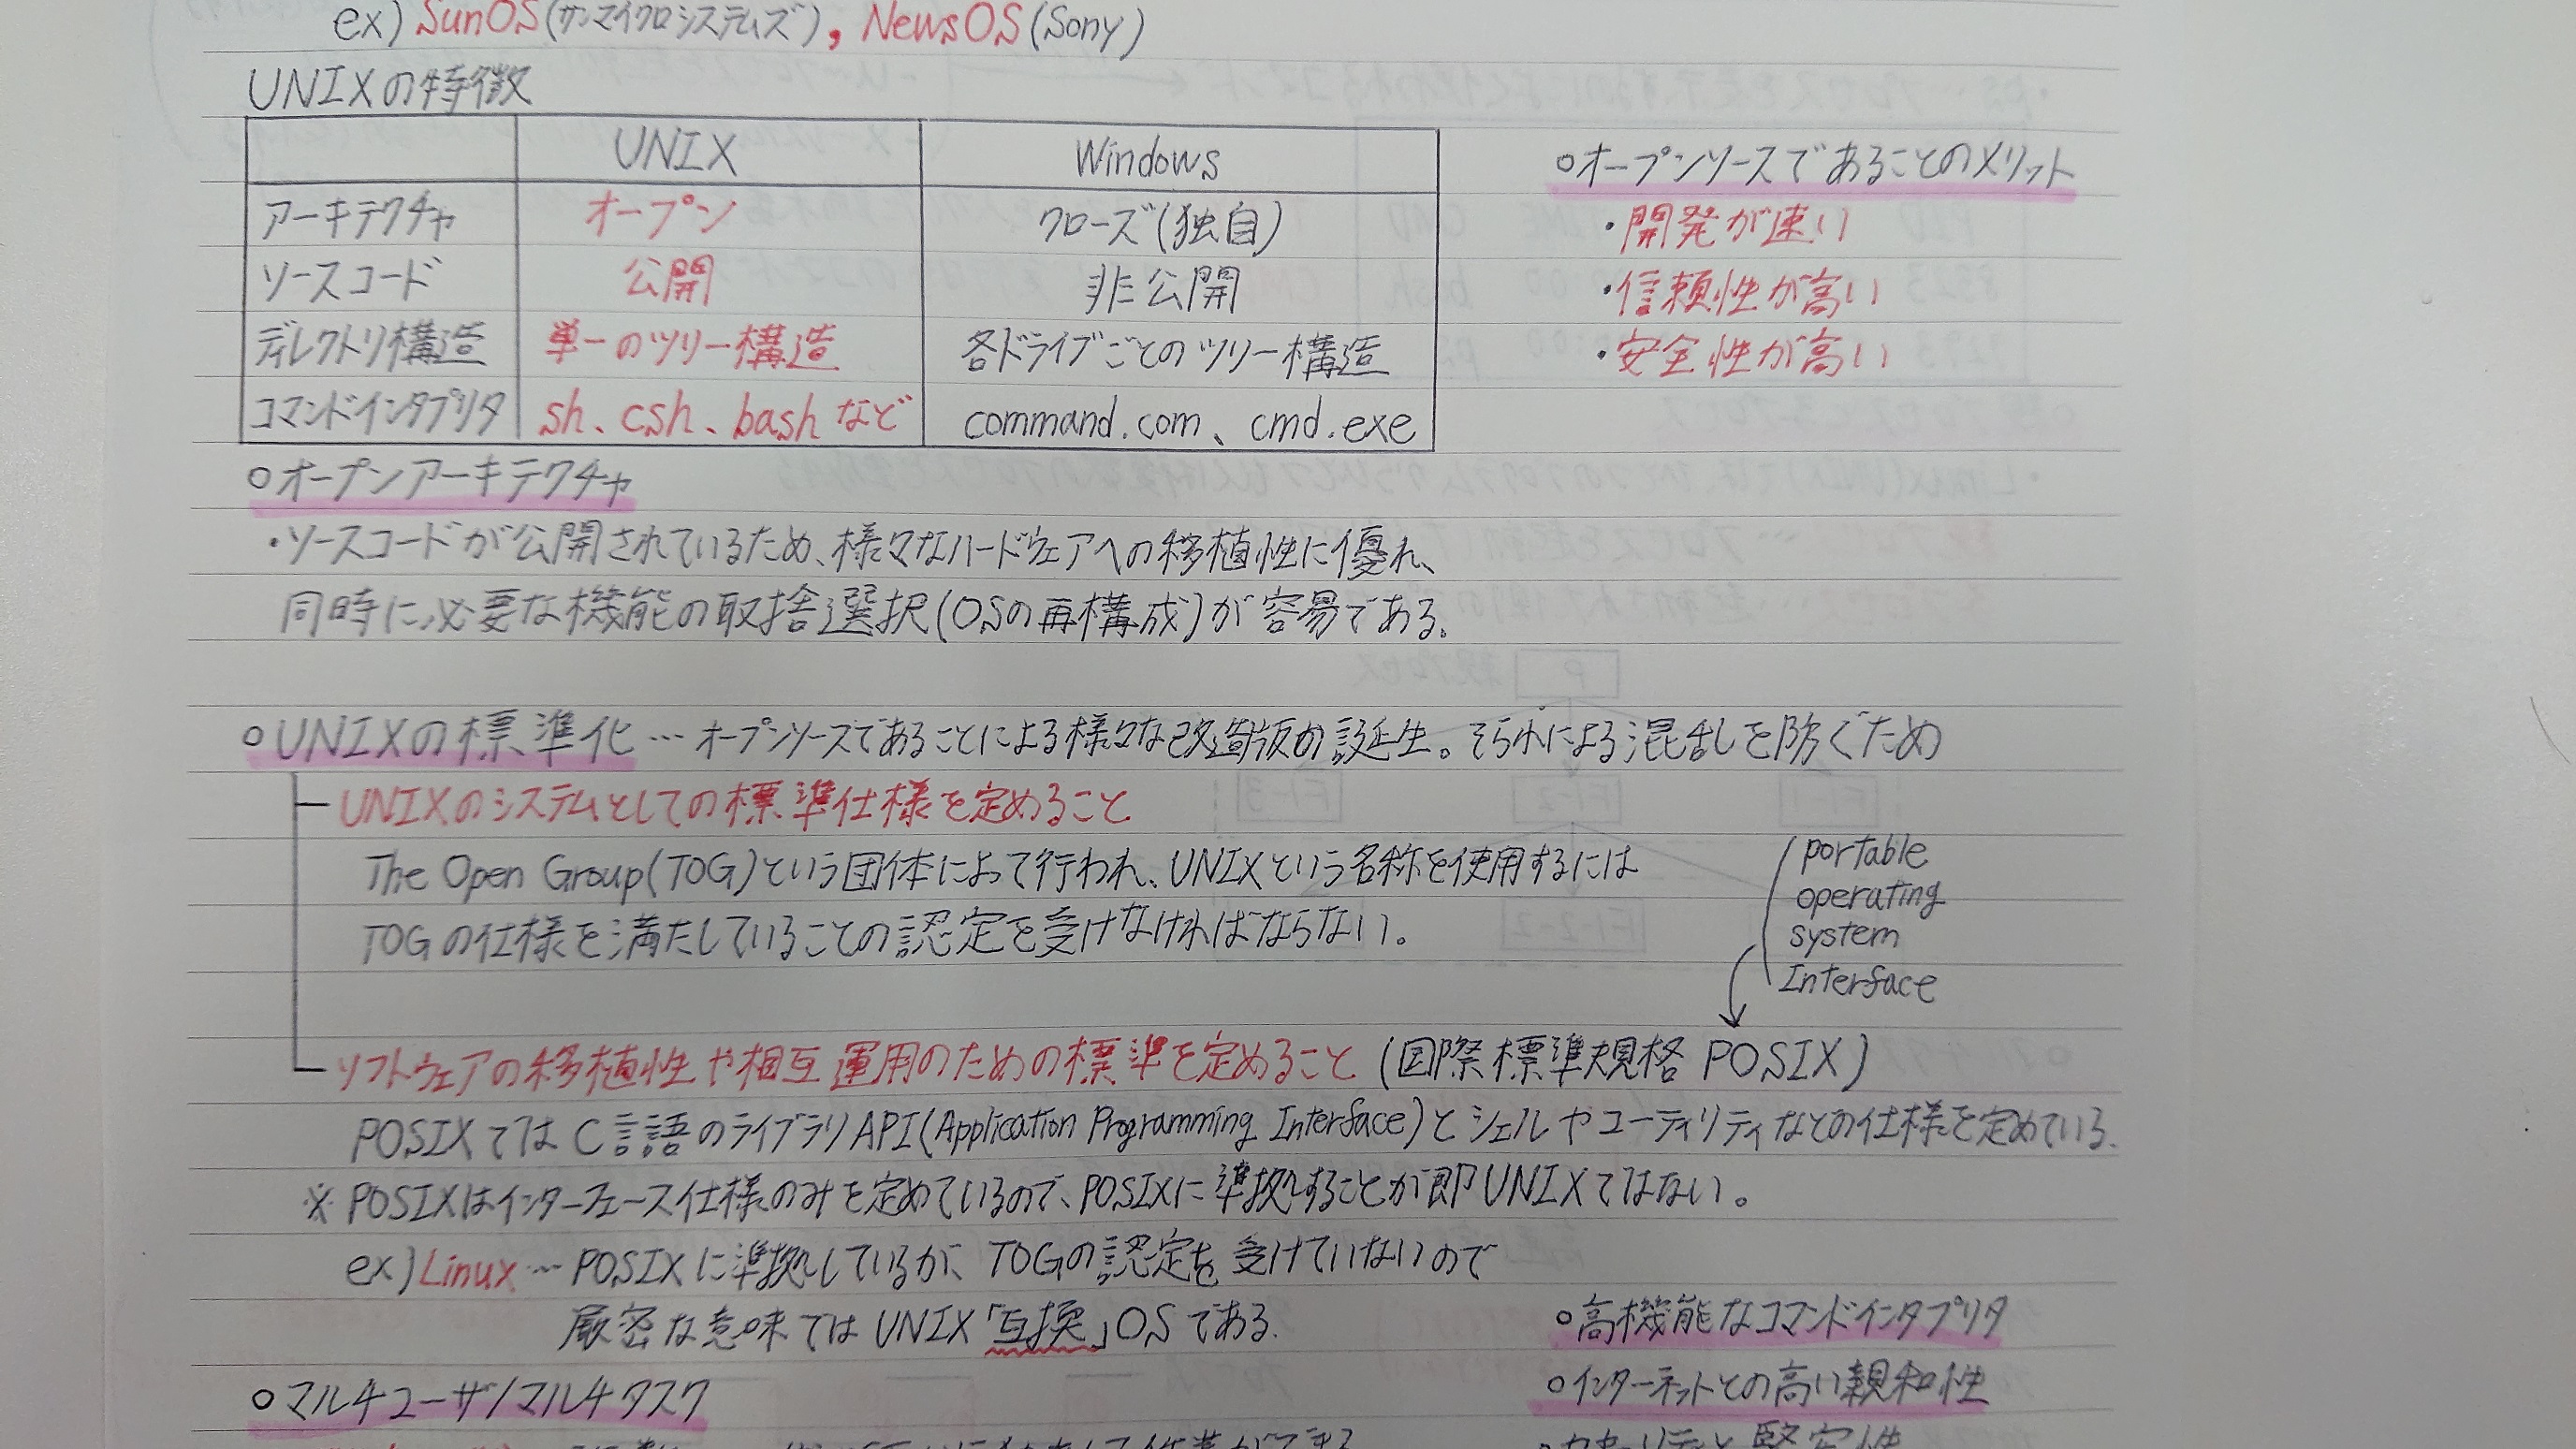 ex) SunOS(サンマイクロシステムズ), NewsOS(Sony)
UNIXの特徴
UNIX Windows
アーキテクチャ オープン クローズ(独自)
ソースコード 公開 非公開
ディレクトリ構造 単一のツリー構造 各ドライブごとのツリー構造
コマンドインタプリタ sh、csh、bashなど command.com、cmd.exe
○オープンソースであることのメリット
・開発が速い
・信頼性が高い
・安全性が高い
○オープンアーキテクチャ
・ソースコードが公開されているため、様々なハードウェアへの移植性に優れ、
同時に必要な機能の取捨選択(OSの再構成)が容易である。
○UNIXの標準化…オープンソースであることによる様々な改造版の誕生。それによる混乱を防ぐため
UNIXのシステムとしての標準仕様を定めること
The Open Group(TOG)という団体によって行われ、UNIXという名称を使用するには
TOGの仕様を満たしていることの認定を受けなければならない。
portable
operating
system
Interface
ソフトウェアの移植性や相互運用のための標準を定めること(国際標準規格 POSIX)
POSIXではC言語のライブラリAPI(Application Programming Interface)とシェルやユーティリティなどの仕様を定めている。
※POSIXはインターフェース仕様のみを定めているので、POSIXに準拠することが即UNIXではない。
ex)Linux…POSIXに準拠しているが、TOGの認定を受けていないので
厳密な意味ではUNIX「互換」OSである。
○マルチユーザ/マルチタスク
○高機能なコマンドインタプリタ
○インターネットとの高い親和性